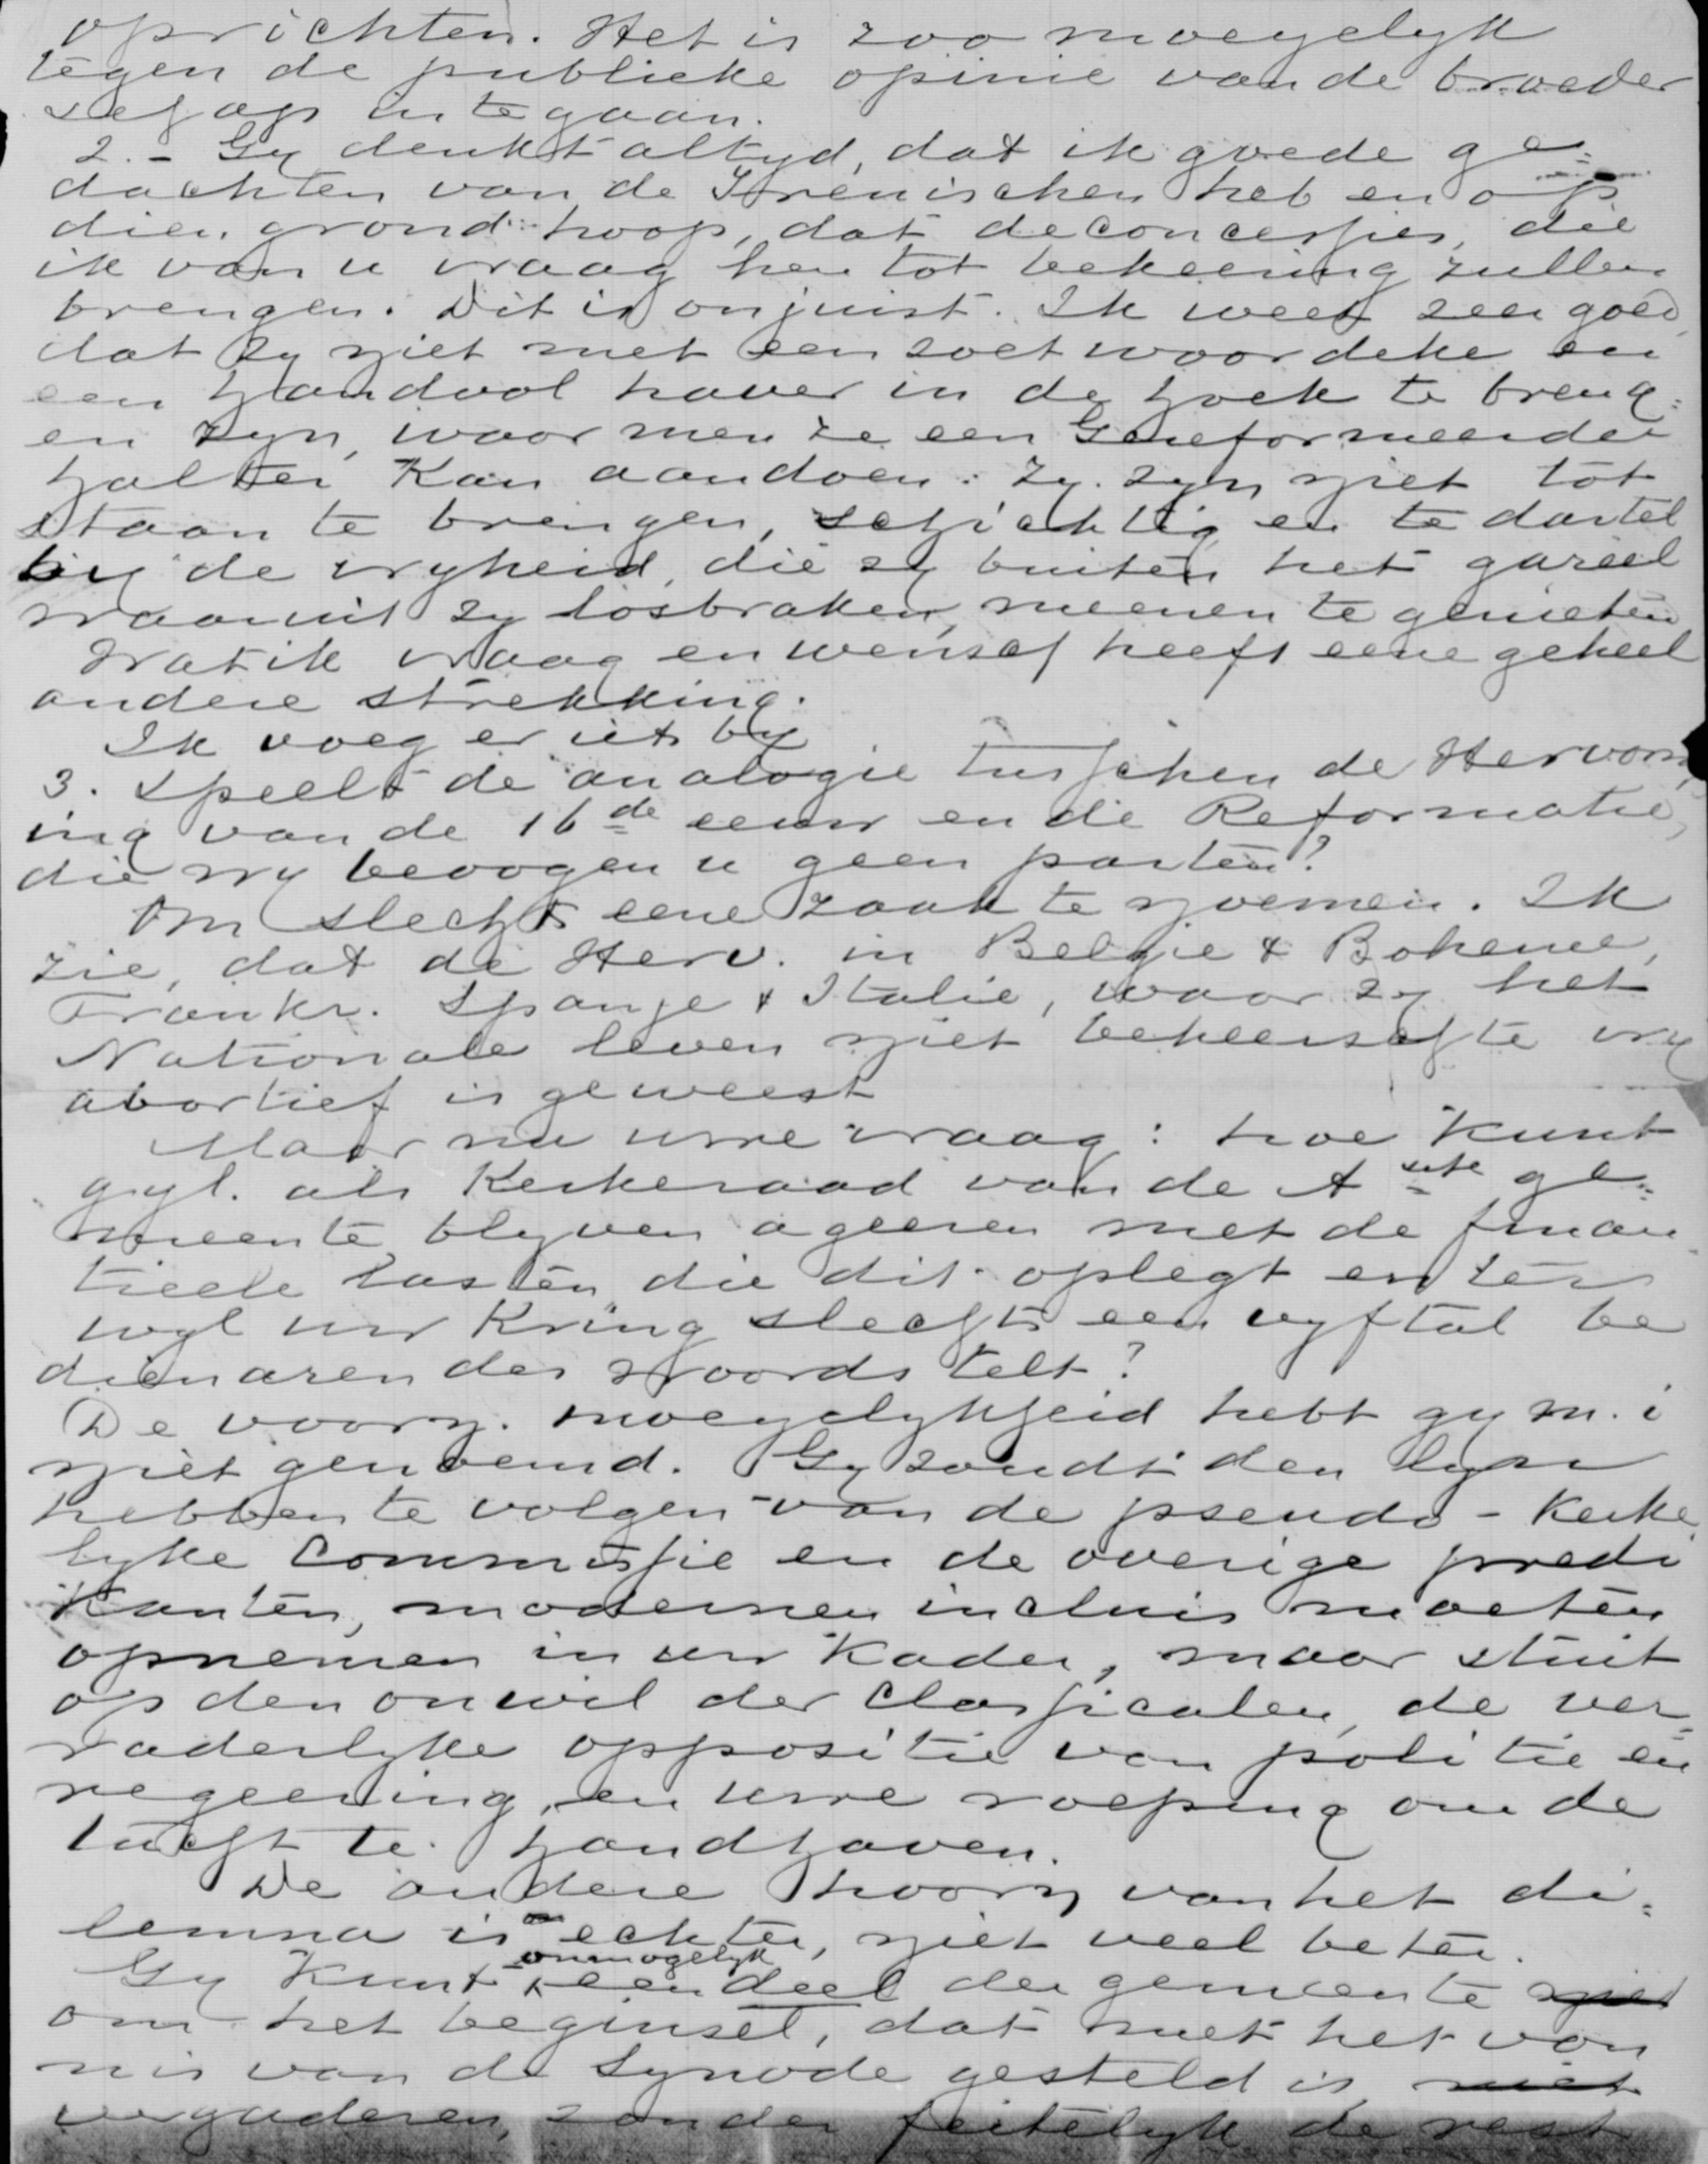 oprichten. Het is zoo moeyelyk
tegen de publieke opinie van de broeder
schap in te gaan.
2. - Gy denkt altyd, dat ik goede ge=
dachten van de Irenischen heb en op
dien grond hoop, dat de concessies, die
ik van u vraag hen tot bekeering zullen
brengen. Dit is onjuist. Ik weet zeer goed
dat zy niet met een zoet woordeke en
een handvol haver in de hoek te breng=
en zyn, waar men ze een Gereformeerden
halter kan aandoen: zy zyn niet tot
staan te brengen, schichtig en te dartel
by de vryheid, die zy buiten het gareel
waaruit zy losbraken, meenen te genieten
Wat ik vraag en wensch heeft eene geheel
andere strekking.
Ik voeg er iets by
3. Speelt de analogie tusschen de Hervorm
ing van de 16de eeuw en de Reformatie,
die wy beoogen u geen parten?
Om slechts eene zaak te noemen. Ik
zie, dat de Herv. in Belgie & Boheme,
Frankr. Spanje & Italie, waar zy het
Nationale leven niet beheerschte vry
abortief is geweest
Maar nu uwe vraag: hoe kunt
gyl. als Kerkeraad van de Aste ge=
meente blyven ageeren met de finan
tieele lasten die dit oplegt en ter
wyl uw Kring slechts een vyftal be
dienaren des Woords telt?
De voorn. moeyelykheid hebt gy m. i
niet genoemd. Gy zoudt den lyn
hebben te volgen van de pseudo - Kerke
lyke Commissie en de overige predi
kanten, modernen incluis moeten
opnemen in uw kader, maar stuit
op den onwil der Classicalen, de ver=
raderlyke oppositie van politie en
regeering, en uwe roeping om de
tucht te handhaven.
De andere hoorn van het di=
lemma is echter, niet veel beter.
Gy kunt onmogelyk een deel der gemeente niet
om het beginsel, dat met het von
nis van de Synode gesteld is, niet
vergaderen, zonder feitelyk de rest